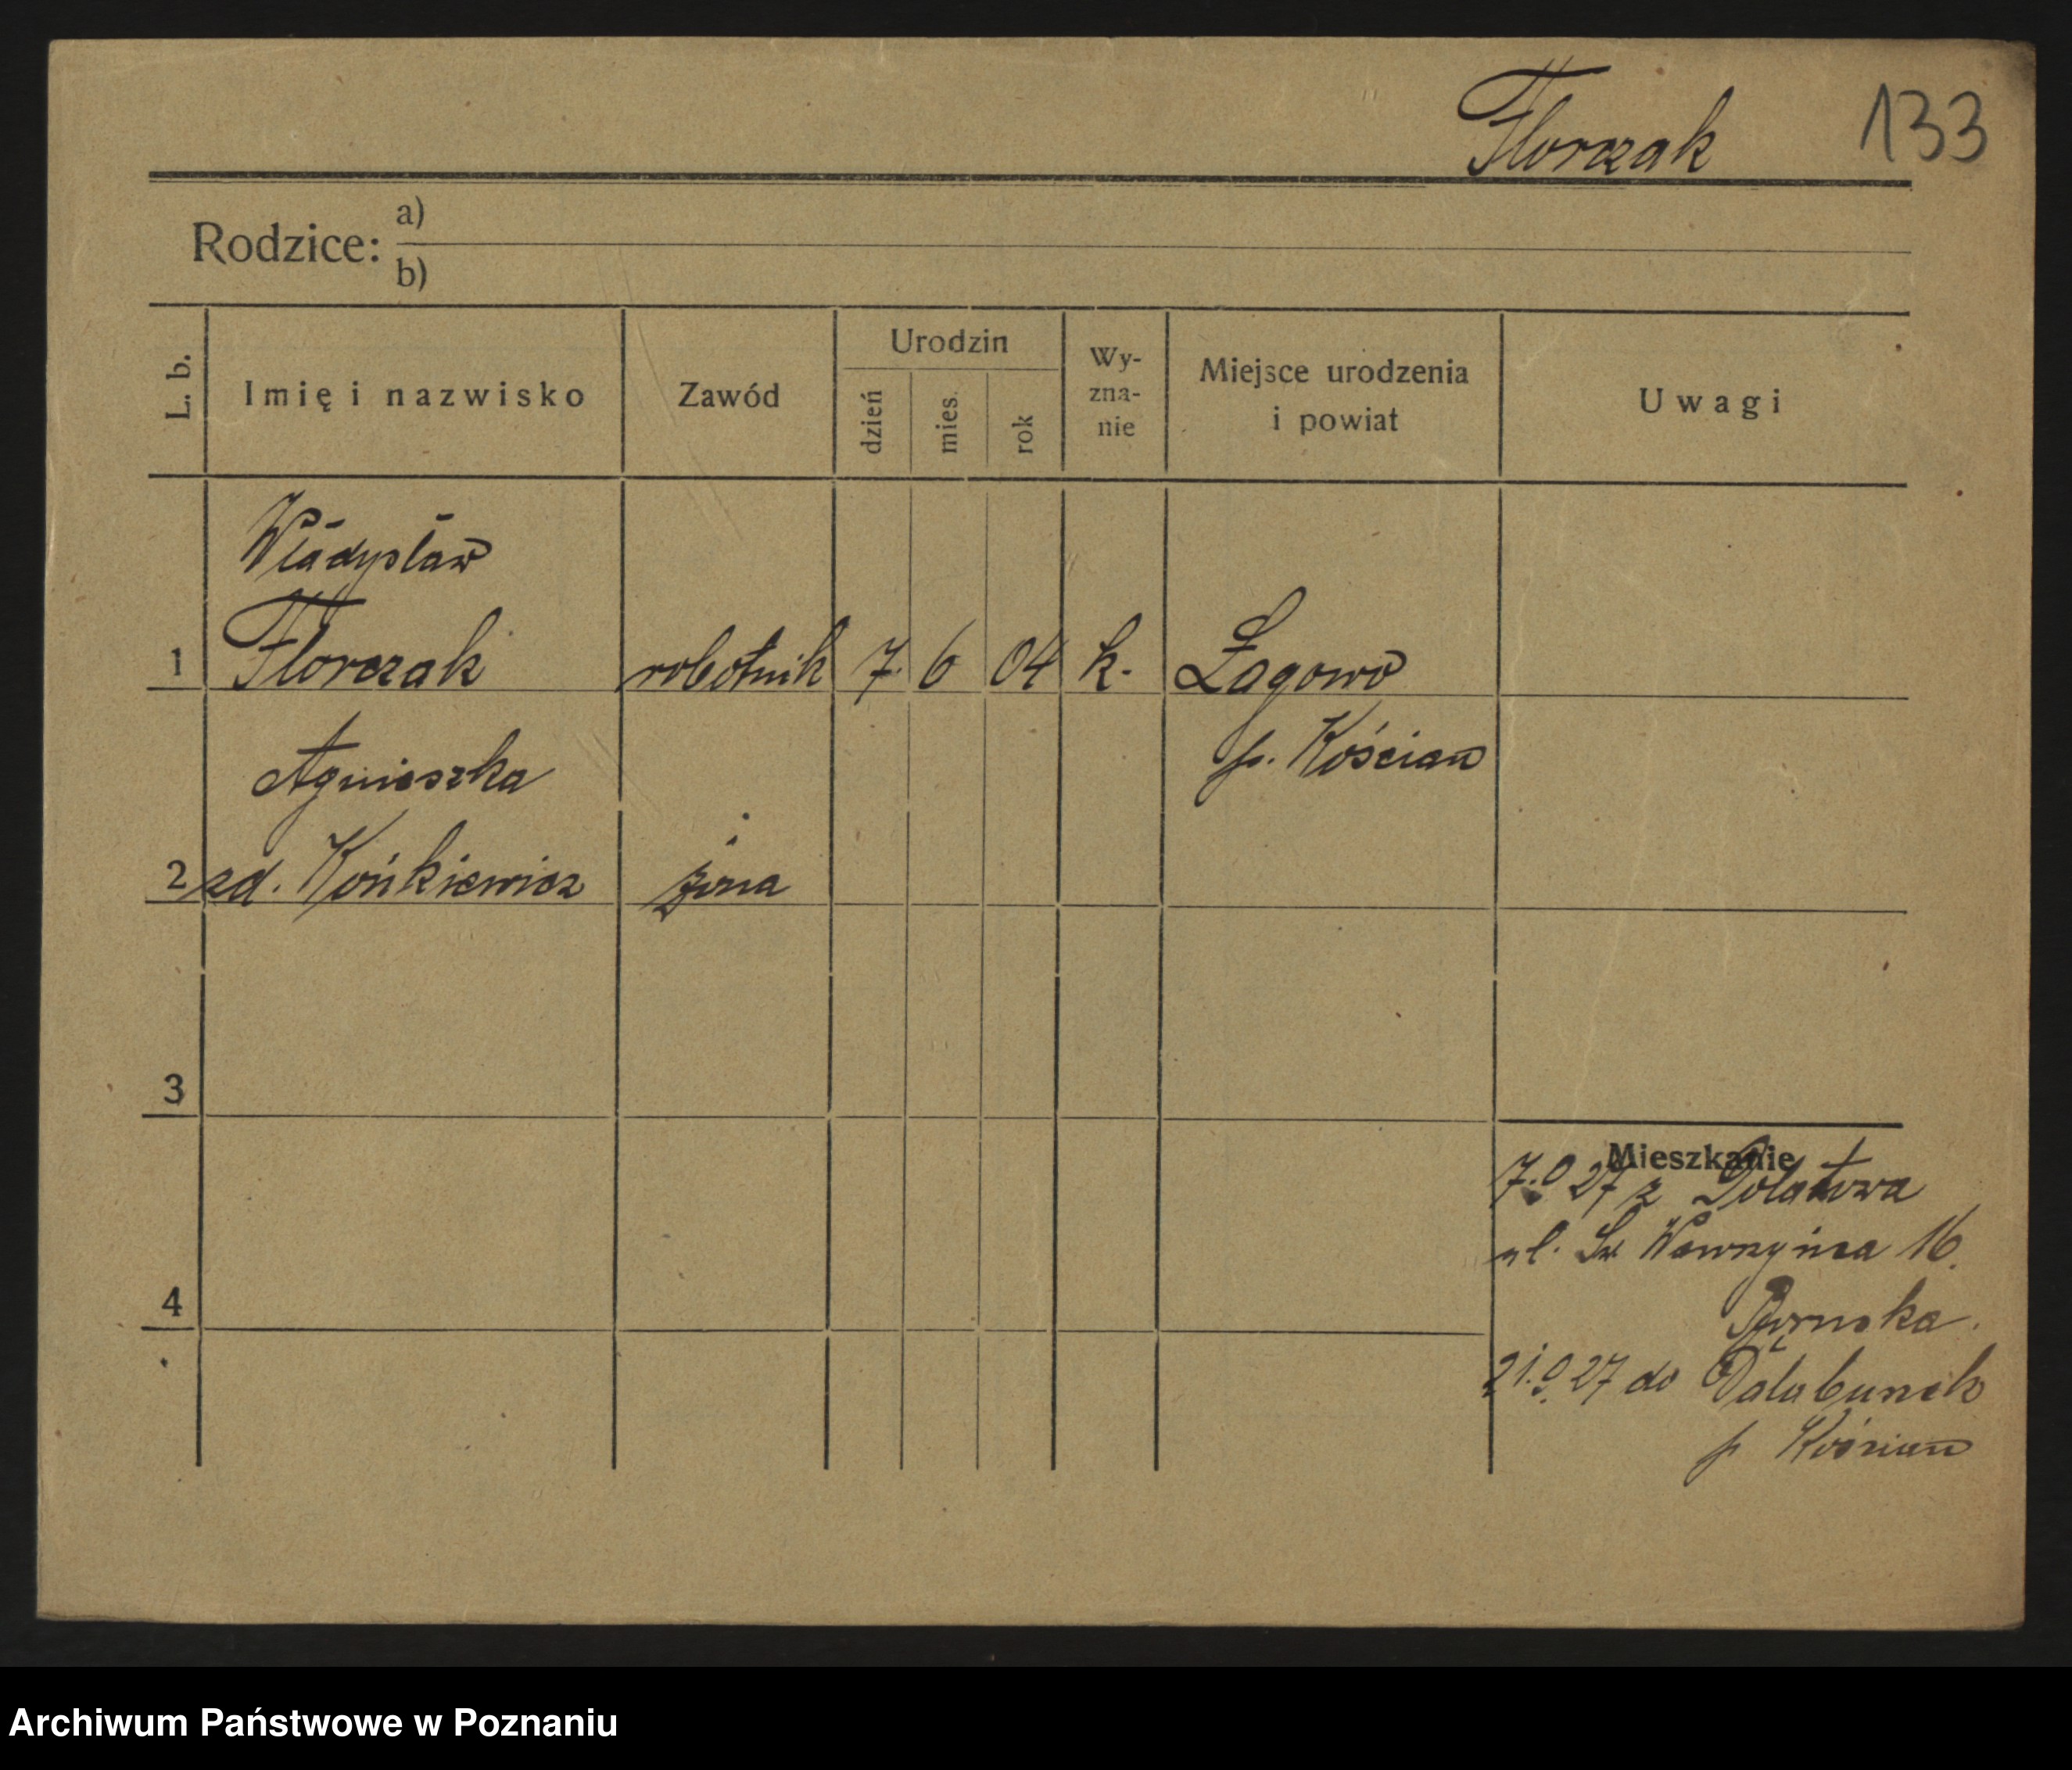 Florczak 133
Rodzice: a)
b)
L. b. Imię i nazwisko Zawód Urodzin dzień mies. rok Wy-zna-nie Miejsce urodzenia i powiat Uwagi
Władysław
1 Florczak robotnik 7. 6 04 k. Łagowo
Agnieszka p. Kościan
2 zd. Końkiewicz żona
3
Mieszkanie
27 z
ul. Św Wawrzyńca 16.
4
27 do
p Kościan
Archiwum Państwowe w Poznaniu